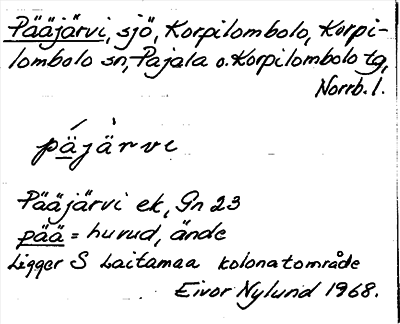 Pääjärvi, sjö, Korpilombolo, Korpi-
lombolo sn, Pajala o. Korpilombolo tg,
Norrb. l.
pä̱́jä̀rve
Pääjärvi ek, Gn 23
pää = huvud, ände
Ligger S Laitamaa kolonatområde
Eivor Nylund 1968.